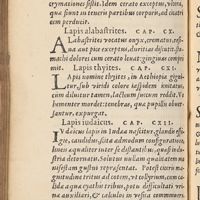 crymationes sistit. Idem cerato exceptus, vitia,
quæ sinui as teneris partibus corporis, ad cicatri
cem perducit.
Lapis alabastrites. CAP. CX.
Alabastrites vocatus onyx, crematus, resi
na aut pice exceptus, duritias discutit: sto
machi dolores cum cerato levat: gingivas compri
mit.
Lapis thyites. CAP. CXI.
Lapis nomine thyites, in Aethiopia gigni
tur, sub viridi colore iaspidem imitatur,
cum diluitur tamen, lacteum succum reddit. Ve
hementer mordet: tenebras, quæ pupillis obuer
santur, expurgat.
Lapis iudaicus. CAP. CXII.
Iudaicus lapis in Iudæa nascitur, glandis effi
gie, candidus, scita admodum configuratione,
lineis æqualiter inter se distantibus, quasi in in
stria detornatis. Solutus nullam qualitatem nec
insistentem gustus repræsentat.
gnitudine tritus ad cotem, velut collyrium,
lidæ aqua cyathis tribus, potus difficultati vri
næ auxiliatur, & calculos in vesica comminuit